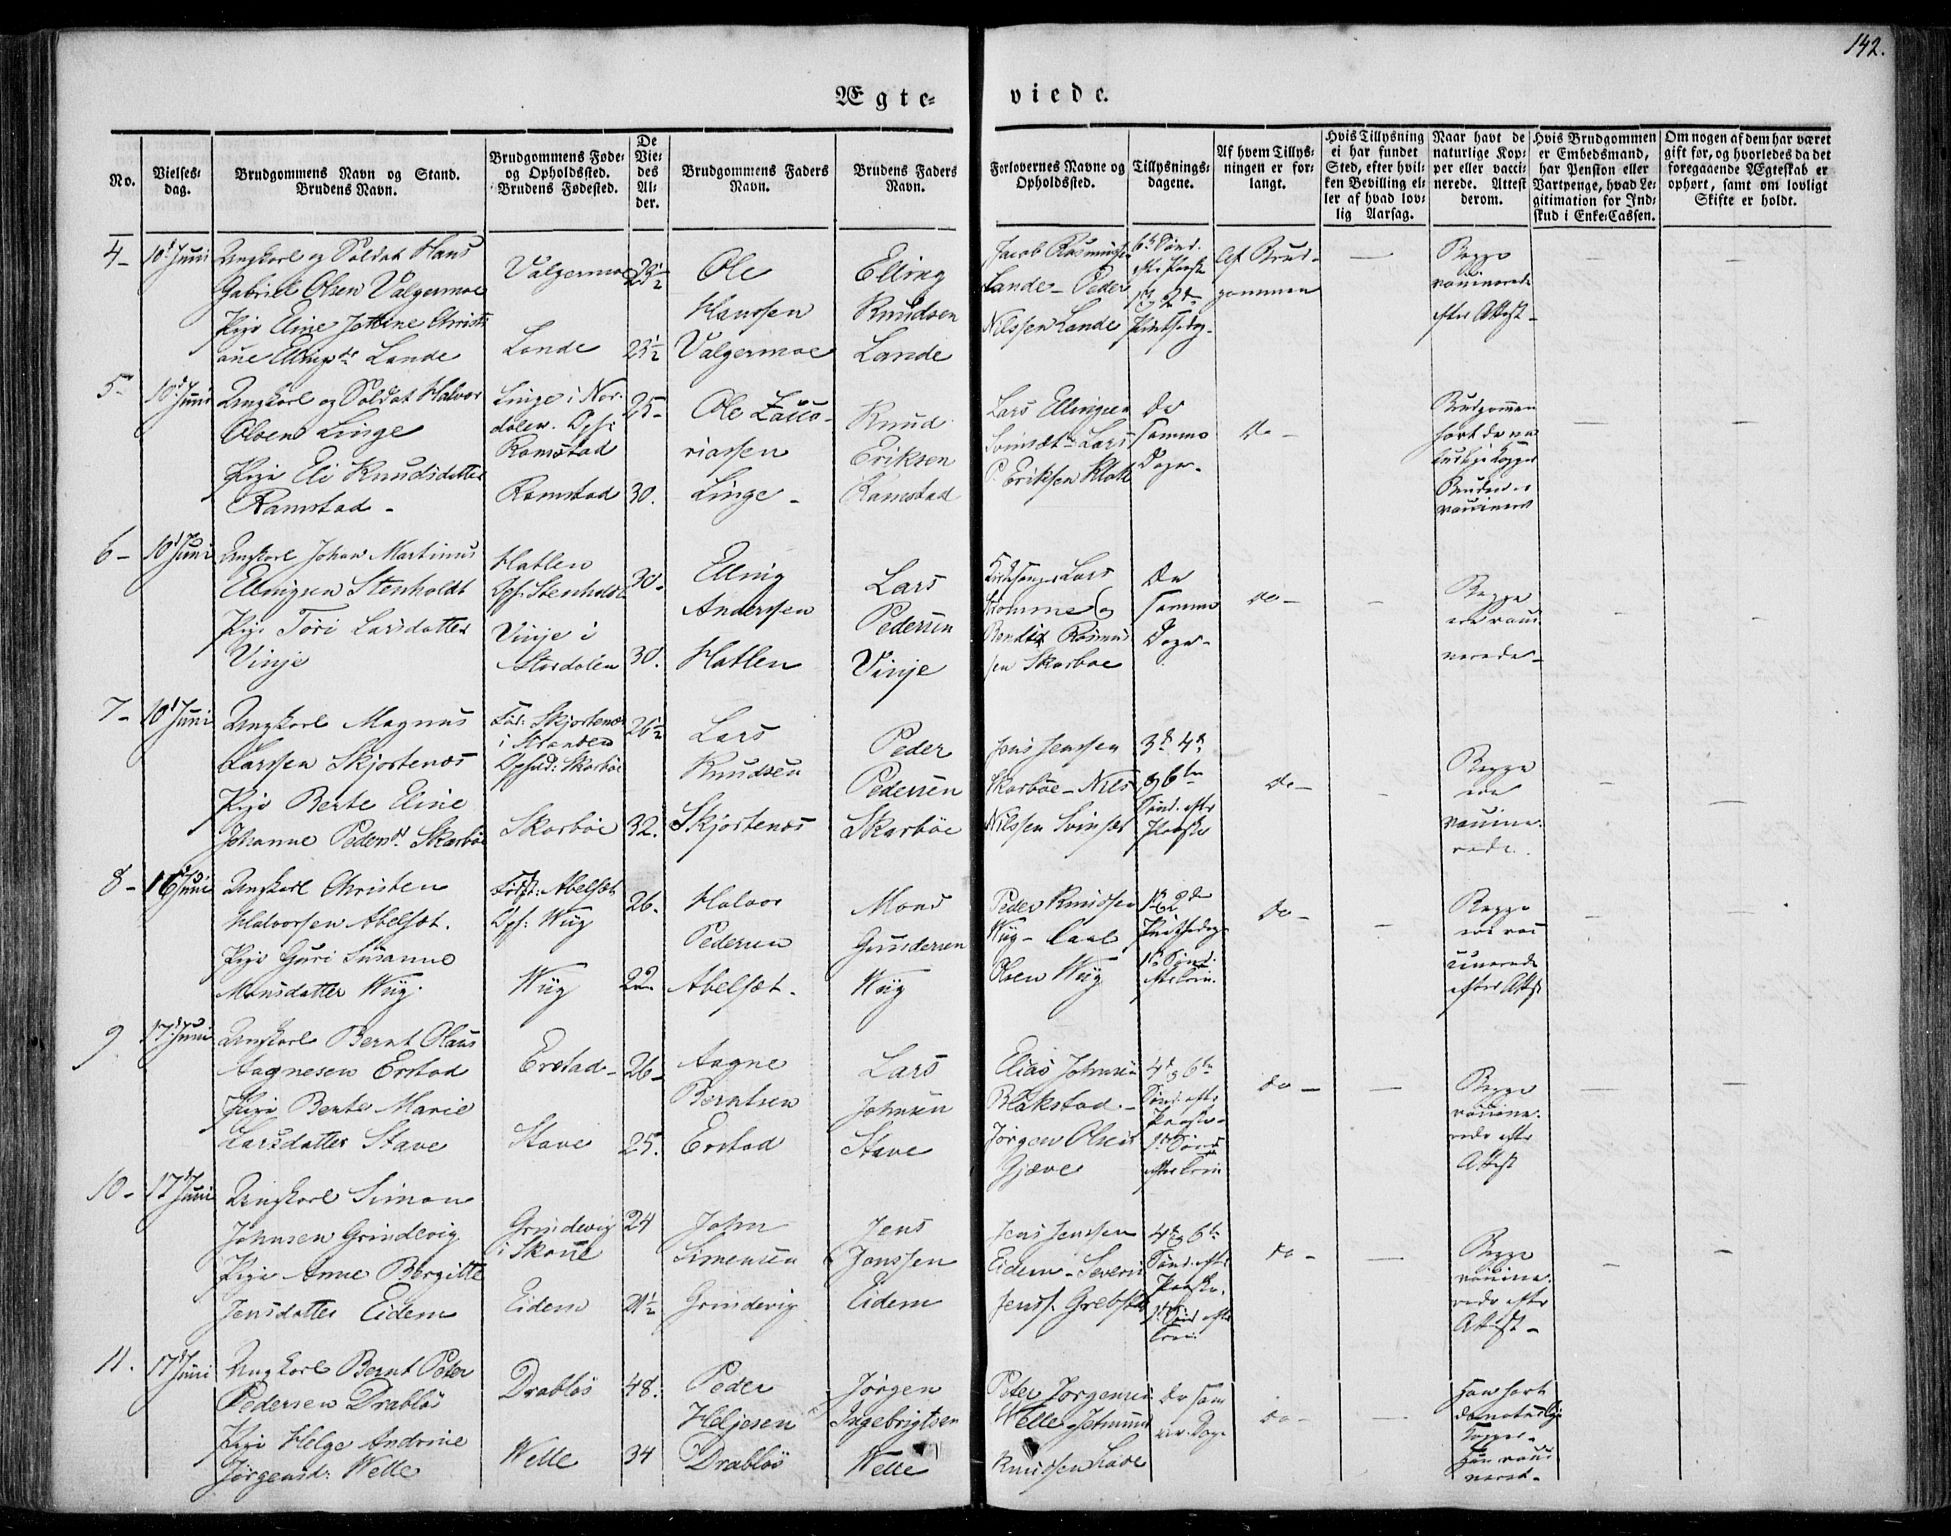 142.
Ægte-
viede.
No.
Vielses-
dag.
Brudgommens Navn og Stand.
Brudens Navn.
Brudgommens Føde-
og Opholdssted.
Brudens Fødested.
De
Vie-
des
Al-
der.
Brudgommens Faders
Navn.
Brudens Faders
Navn.
Forlovernes Navne og
Opholdssted.
Tillysnings-
dagene.
Af hvem Tillys-
ningen er for-
langt.
Hvis Tillysning
ei har fundet
Sted, efter hvil-
ken Bevilling el-
ler af hvad lov-
lig Aarsag.
Naar havt de
naturlige Kop-
per eller vacci-
nerede. Attest
derom.
Hvis Brudgommen
er Embedsmand,
har Pension eller
Vartpenge, hvad Le-
gitimation for Ind-
skud i Enke-Cassen.
Om nogen af dem har været
gift før, og hvorledes da det
foregaaende Ægteskab er
ophørt, samt om lovligt
Skifte er holdt.
4-
10d Juni
Ungkarl og Soldat Hans
Gabriel Olsen Valgermoe
Pige Eline Jottine Christi
ane Ellingsdr Lande
Valgermoe
Lande
23½
25½
Ole
Hanssen
Valgermoe
Elling
Knudsen
Lande
Jacob Rasmussen
Lande - Peder
Nilssen Lande
6te Sønd.
efter Paaske
1ste og 2den
Pintsedag-
Af Brud-
gommen
Begge
vaccinerede
efter Attest-
5-
10d Juni
Ungkarl og Soldat Halvor
Olsen Linge
Pige Eli Knudsdatter
Ramstad -
Linge i Nor-
dalen. Opf:
Ramstad
Ramstad
25-
30.
Ole Zacca-
riassen
Linge -
Knud
Eriksen
Ramstad
Lars Ellingsen
Svindset - Lars
P. Eriksen Klok
De
samme
Dage-
do-
Brudgommen
havt de na
turlige Kopper
Bruden er
vaccineret
6-
10d Juni
Ungkarl Johan Martinus
Ellingsen Stenholdt
Pige Tori Larsdatter
Vinje
Hatlen
Opf: Stenholdt
Vinje i
Stordalen
30-
30.
Elling
Anderssen
Hatlen
Lars
Pedersen
Vinje
Kirkesanger Lars
Stomme og
Bendix Rasmus
sen Skarboe
De
samme
Dage-
do-
Begge
ere vacci
nerede-
7-
10d Juni
Ungkarl Magnus
Larssen Skjortenæs
Pige Berte Eline
Johanne Pedersdr Skarbøe
Fød: Skjortenæs
i Stranden
Opf: Skarbøe
Skarbøe
26½
32.
Lars
Knudsen
Skjortenæs
Peder
Pedersen
Skarbøe
Jens Jenssen
Skarbøe - Nils
Nilssen Svinset
3de 4de
og 6te
Sønd. efter
Paaske
do-
Begge
ere
vaccine-
rede.
8-
16d Juni
Ungkarl Christen
Halvorsen Abelset.
Pige Guri Susanne
Monsdatter Wiig.
Født: Abelset
Opf: Wiig
Wiig
26.
22.
Halvor
Pedersen
Abelset.
Mons
Gundersen
Wiig
Peder Knudsen
Wiig - Carl
Olsen Wiig
1ste og 2den
Pintsedag
1ste Sønd.
efter Trin.
do-
Begge
ere vac
cinerede
efter Attest
9
17d Juni
Ungkarl Bernt Olaus
Aagnesen Erstad
Pige Berte Marie
Larsdatter Stave
Erstad-
Stave
26-
25.
Aagne
Berntsen
Erstad
Lars
Johnsen
Stave
Elias Johnsen
Blakstad -
Jørgen Olsen
Gjøve
4de og 6te
Sønd. efter
Paaske-
1ste Sønd
efter Trin
do-
Begge
vaccine-
rede efter
Attest
10-
17d Juni
Ungkarl Simon
Johnsen Grindevig
Pige Anne Bergitte
Jensdatter Eidem
Grindevig
i Skoue
Eidem
24
21½
John
Simensen
Grindevig
Jens
Jonssen
Eidem
Jens Jenssen
Eidem - Severin
Jenss. Grebstad
4de og 6te
Sønd. efter
Paaske,
1ste Sønd efter
Trin:
do-
Begge
vaccine-
rede efter
Attest-
11.
17d Juni
Ungkarl Bernt Peter
Pedersen Drabløs
Pige Helge Andrine
Jørgensd: Welle
Drabløs
Welle
48.
34
Peder
Heljesen
Drabløs
Jørgen
Ingebrigtsen
Welle
Peter Jørgensen
Welle Jetmund
Knudsen Lade
De sam
me Dage
do-
Han havt
de naturlige
Kopper-
Hun vacci
neret-